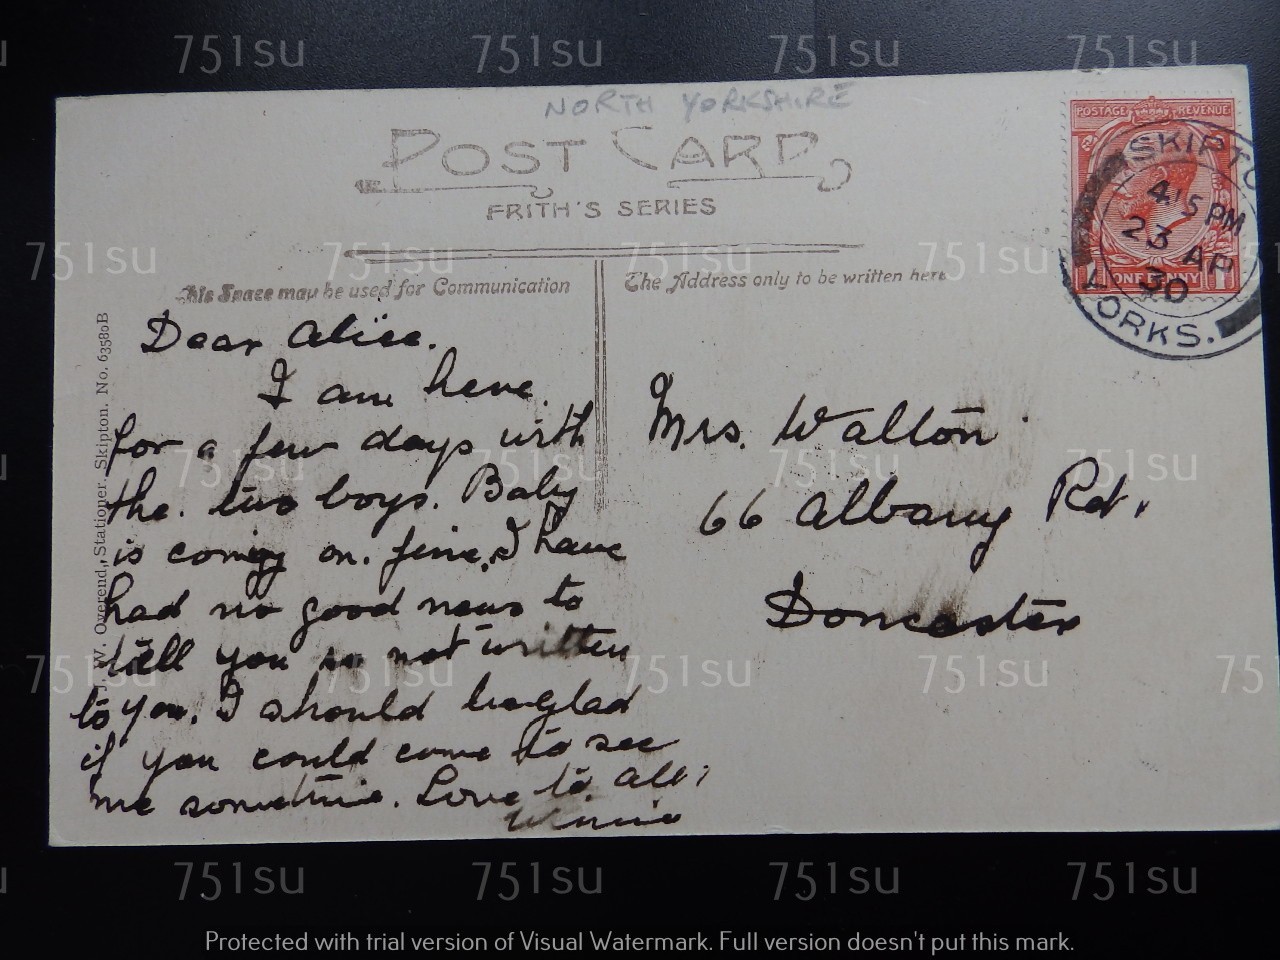 NORTH YORKSHIRE
POST CARD
FRITH'S SERIES
This Space may be used for Communication
The Address only to be written here
POSTAGE REVENUE
ONE PENNY
SKIPTO
4 15 PM
23 AP
30
YORKS.
J. W. Overend, Stationer. Skipton. No. 63580B
Dear Alice.
I am here
for a few days with
the two boys. Baby
is coming on. fine, I have
had no good news to
tell you so not written
to you. I should be glad
if you could come to see
me sometime. Love to all,
Winnie
Mrs. Walton
66 Albany Rd.
Doncaster
751su 751su 751su 751su
751su 751su 751su 751su
751su 751su 751su 751su
751su 751su 751su 75
751su 751su 751su 751su
Protected with trial version of Visual Watermark. Full version doesn't put this mark.